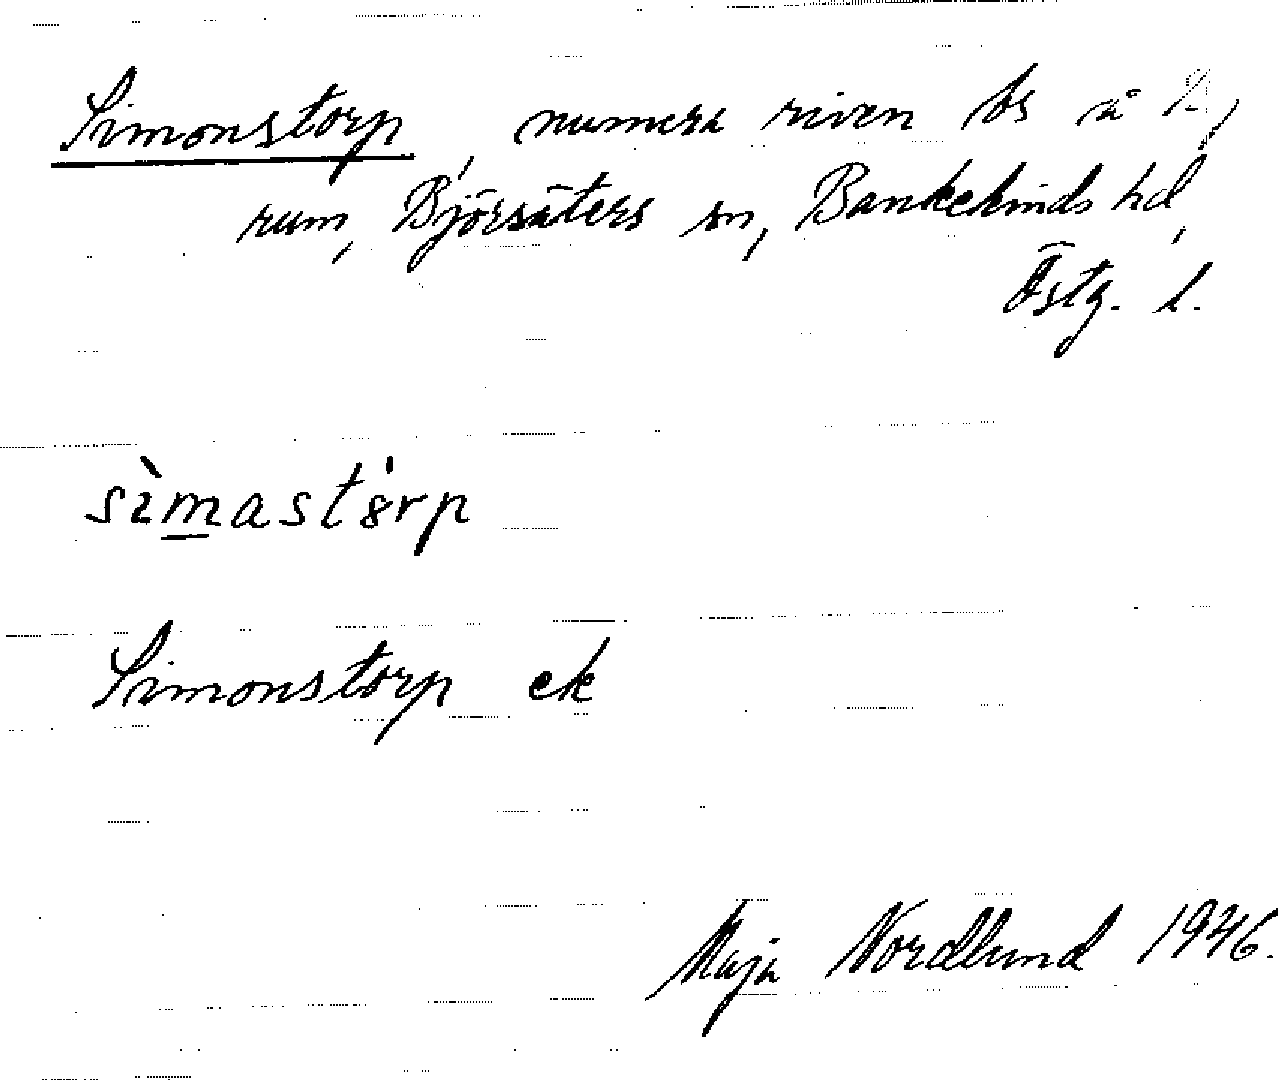 Simonstorp, numera riven bs å
rum, Björsäters sn, Bankekinds hd,
Östg. l.
sìmastȯrp
Simonstorp ek
Maja Nordlund 1946.